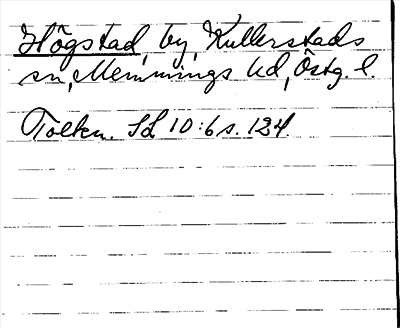 Högstad, by, Kullerstads
sn, Memmings hd, Östg. l.
Tolkn. SL 10:6 s. 124.